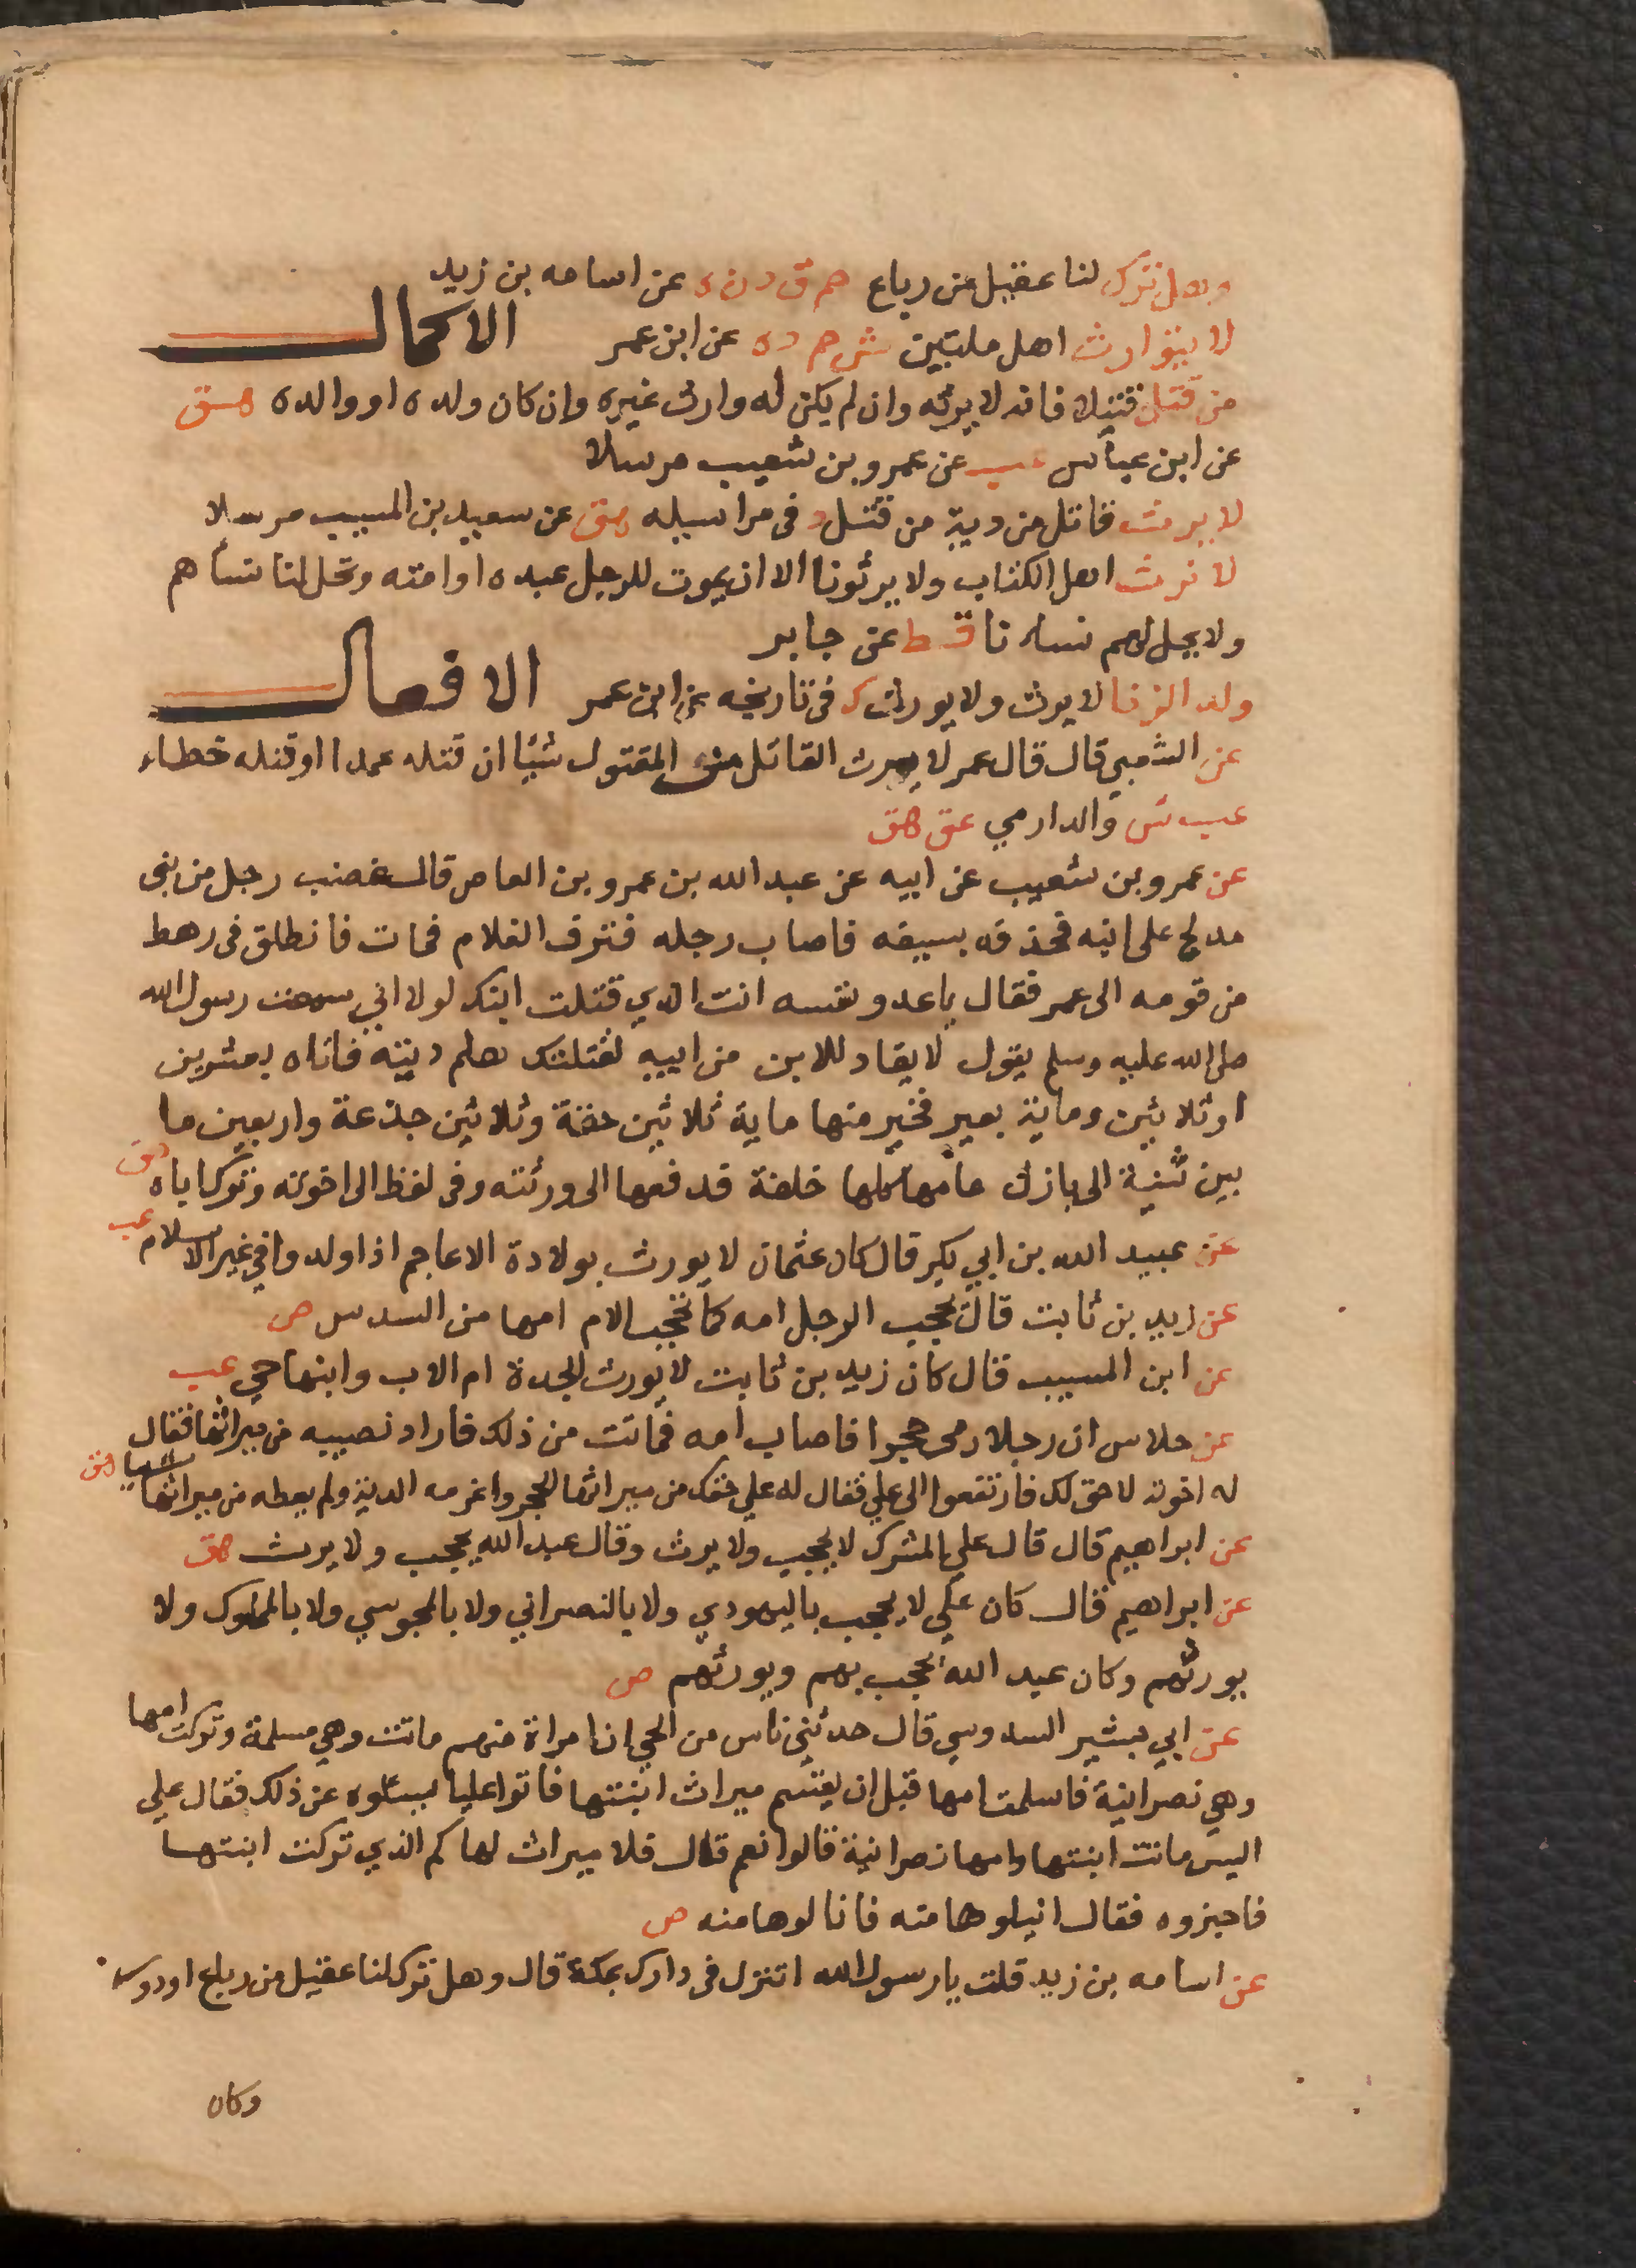 وهل ترك لنا عقيل من رباع حم ق د ن ه عن اسامه بن زيد
لا يتوارث اهل ملتين ش حم د ه عن ابن عمر الاكمال
من قتل قتيلا فانه لا يرثه وان لم يكن له وارث غيره وان كان ولده او والده هق
عن ابن عباس عب عن عمرو بن شعيب مرسلا
لا يرث قاتل من دية من قتل د فى مراسيله هق عن سعيد بن المسيب مرسلا
لا نرث اهل الكتاب ولا يرثونا الا ان يموت للرجل عبده او امته وتحل لنا نساهم
ولا يحل لهم نساء نا قط عن جابر
ولد الزنا لا يرث ولا يورث ك فى تاريخه عن ابن عمر الافعال
عن الشعبي قال قال عمر لا يرث القاتل من المقتول شيئا ان قتله عمدا او قتله خطاء
عب ش والدارمي عق هق
عن عمرو بن شعيب عن ابيه عن عبد الله بن عمرو بن العاص قال غضب رجل من بنى
مدلج على ابنه فحذفه بسيفه فاصاب رجله فنزف الغلام فمات فانطلق فى رهط
من قومه الى عمر فقال يا عدو نفسه انت الذي قتلت ابنك لولا اني سمعت رسول الله
صلى الله عليه وسلم يقول لا يقاد للابن من ابيه لقتلتك هلم ديته فاتاه بعشرين
او ثلاثين وماية بعير فخير منها ماية ثلاثين حقة وثلاثين جذعة واربعين ما
بين ثنية الى بازل عامها كلها خلفة فدفعها الى ورثته وفى لفظ الى اخوته وترك اباه هق
عن عبيد الله بن ابي بكر قال كان عثمان لا يورث بولادة الاعاجم اذا ولدوا في غير الاسلام عب
عن زيد بن ثابت قال يحجب الرجل امه كما تحجب الام امها من السدس ص
عن ابن المسيب قال كان زيد بن ثابت لا يورث الجدة ام الاب وابنها حي عب
عن خلاس ان رجلا رمى بحجر فاصاب امه فماتت من ذلك فاراد نصيبه من ميراثها فقال
له اخوته لا حق لك فارتفعوا الى علي فقال له علي حقك من ميراثها الحجر واغرمه الدية ولم يعطه من ميراثها شيئا هق
عن ابراهيم قال قال علي المشرك لا يحجب ولا يرث وقال عبد الله يحجب ولا يرث هق
عن ابراهيم قال كان علي لا يحجب باليهودي ولا بالنصراني ولا بالمجوسي ولا بالمملوك ولا
يورثهم وكان عبد الله يحجب بهم ويورثهم ص
عن ابي بشير السدوسي قال حدثني ناس من الحي ان امراة منهم ماتت وهي مسلمة وتركت امها
وهي نصرانية فاسلمت امها قبل ان يقسم ميراث ابنتها فاتوا عليا يسئلوه عن ذلك فقال علي
اليس ماتت ابنتها وامها نصرانية قالوا نعم قال فلا ميراث لها كم الذي تركت ابنتها
فاخبروه فقال انيلوها منه فانالوها منه ص
عن اسامه بن زيد قلت يا رسول الله اتنزل فى دارك بمكة قال وهل ترك لنا عقيل من رباع او دور
وكان